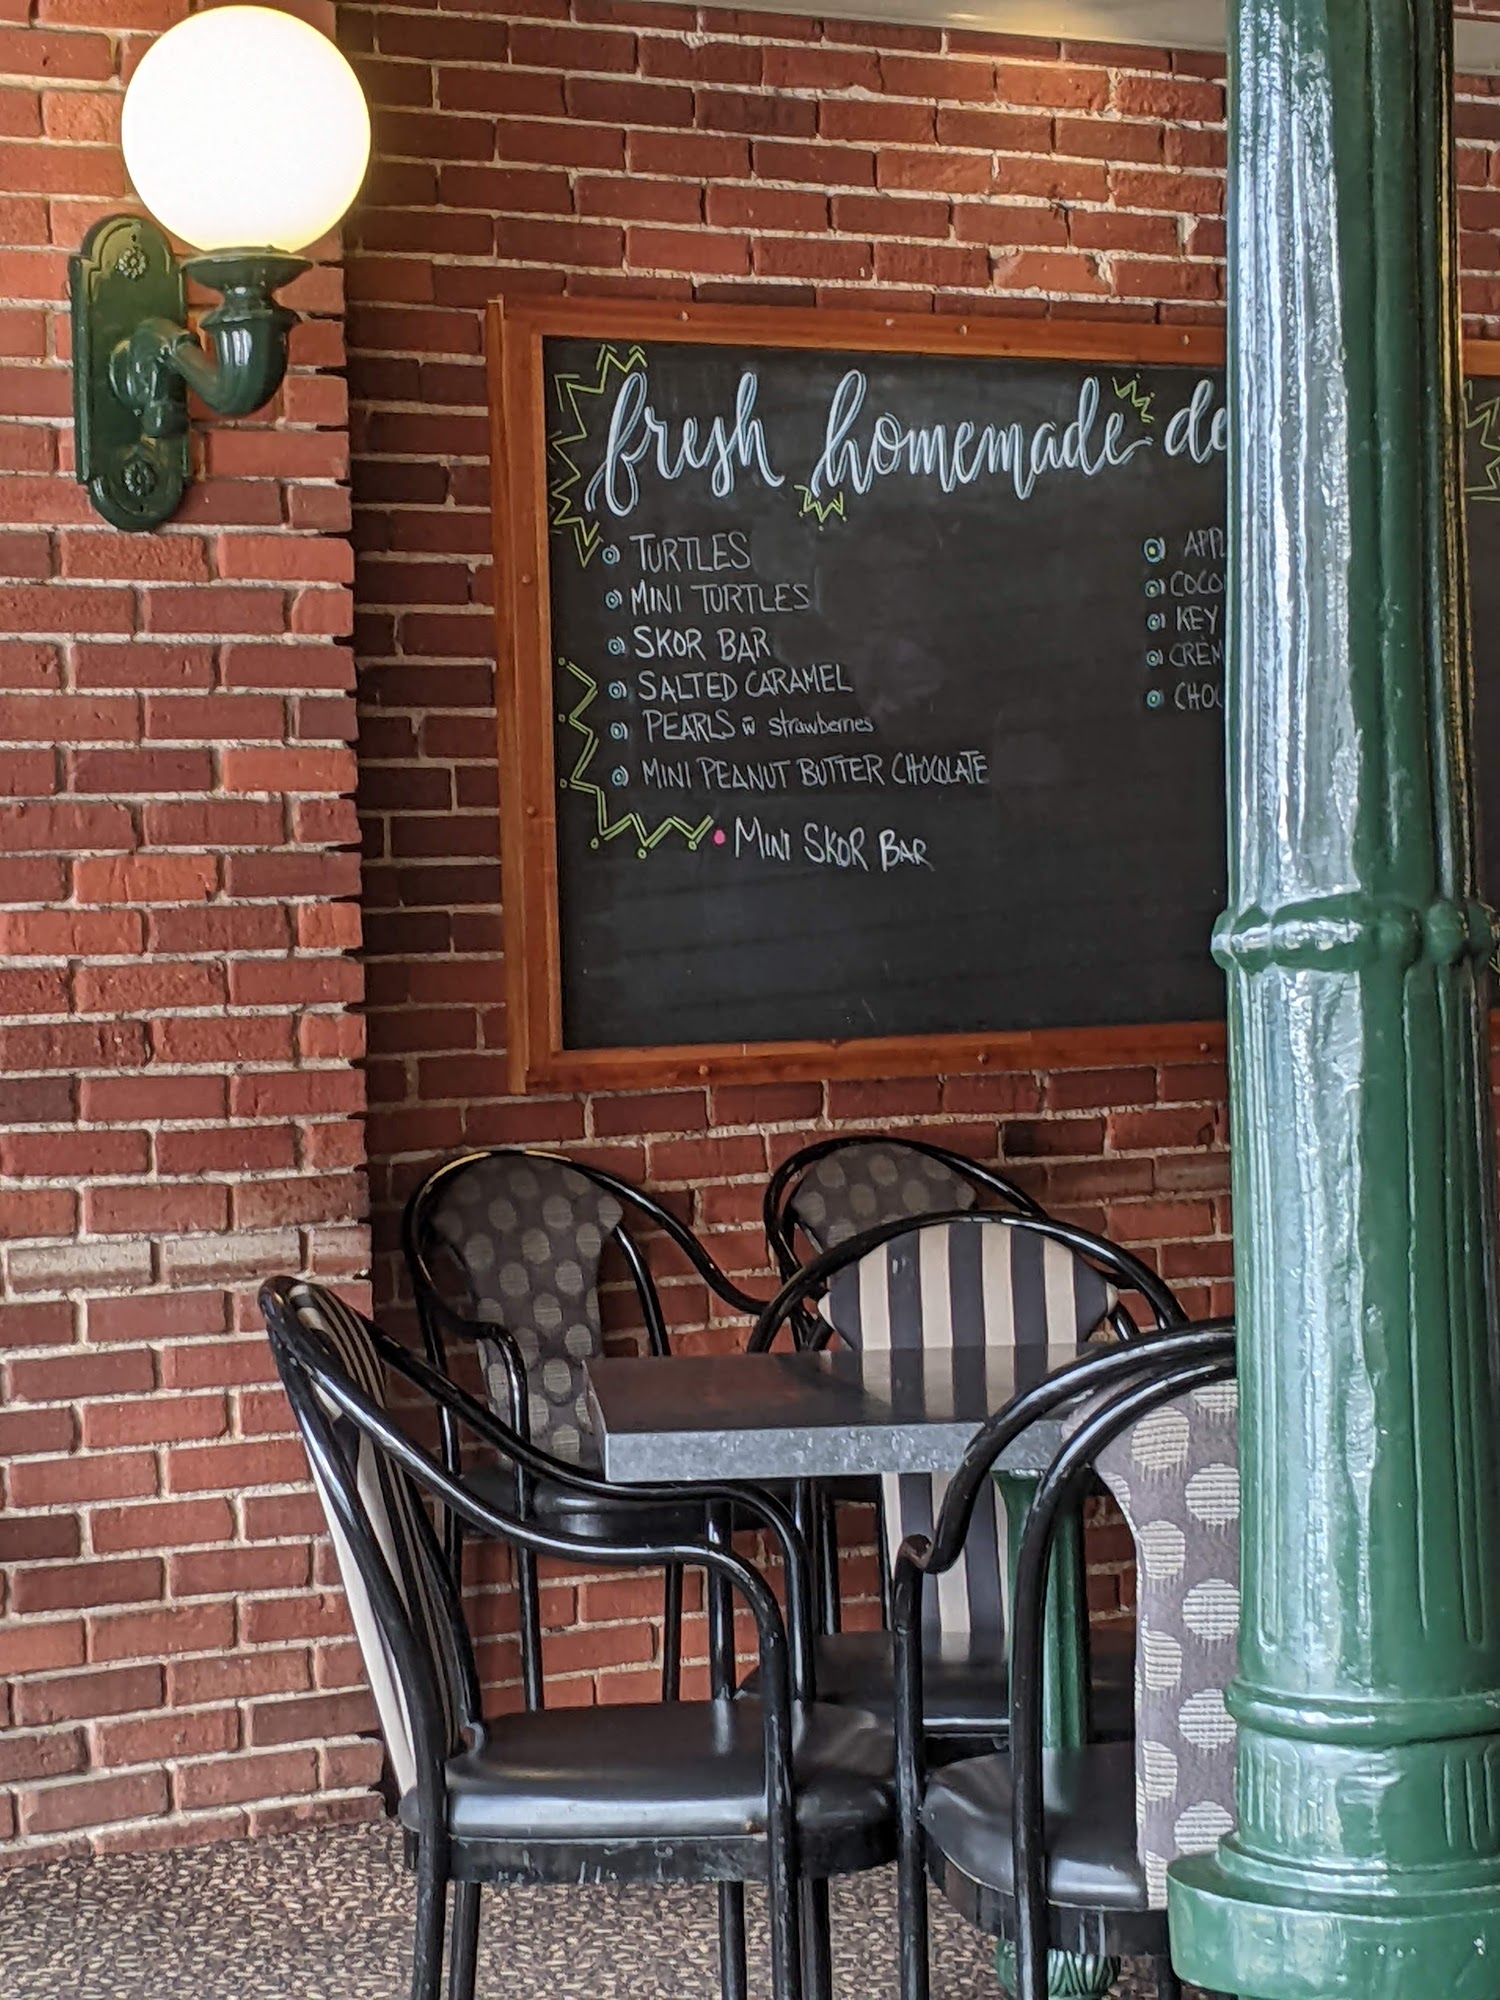 fresh homemade de
TURTLES
MINI TURTLES
SKOR BAR
SALTED CARAMEL
PEARLS w̄ strawberries
MINI PEANUT BUTTER CHOCOLATE
MINI SKOR BAR
APPL
COCO
KEY
CREM
CHOC